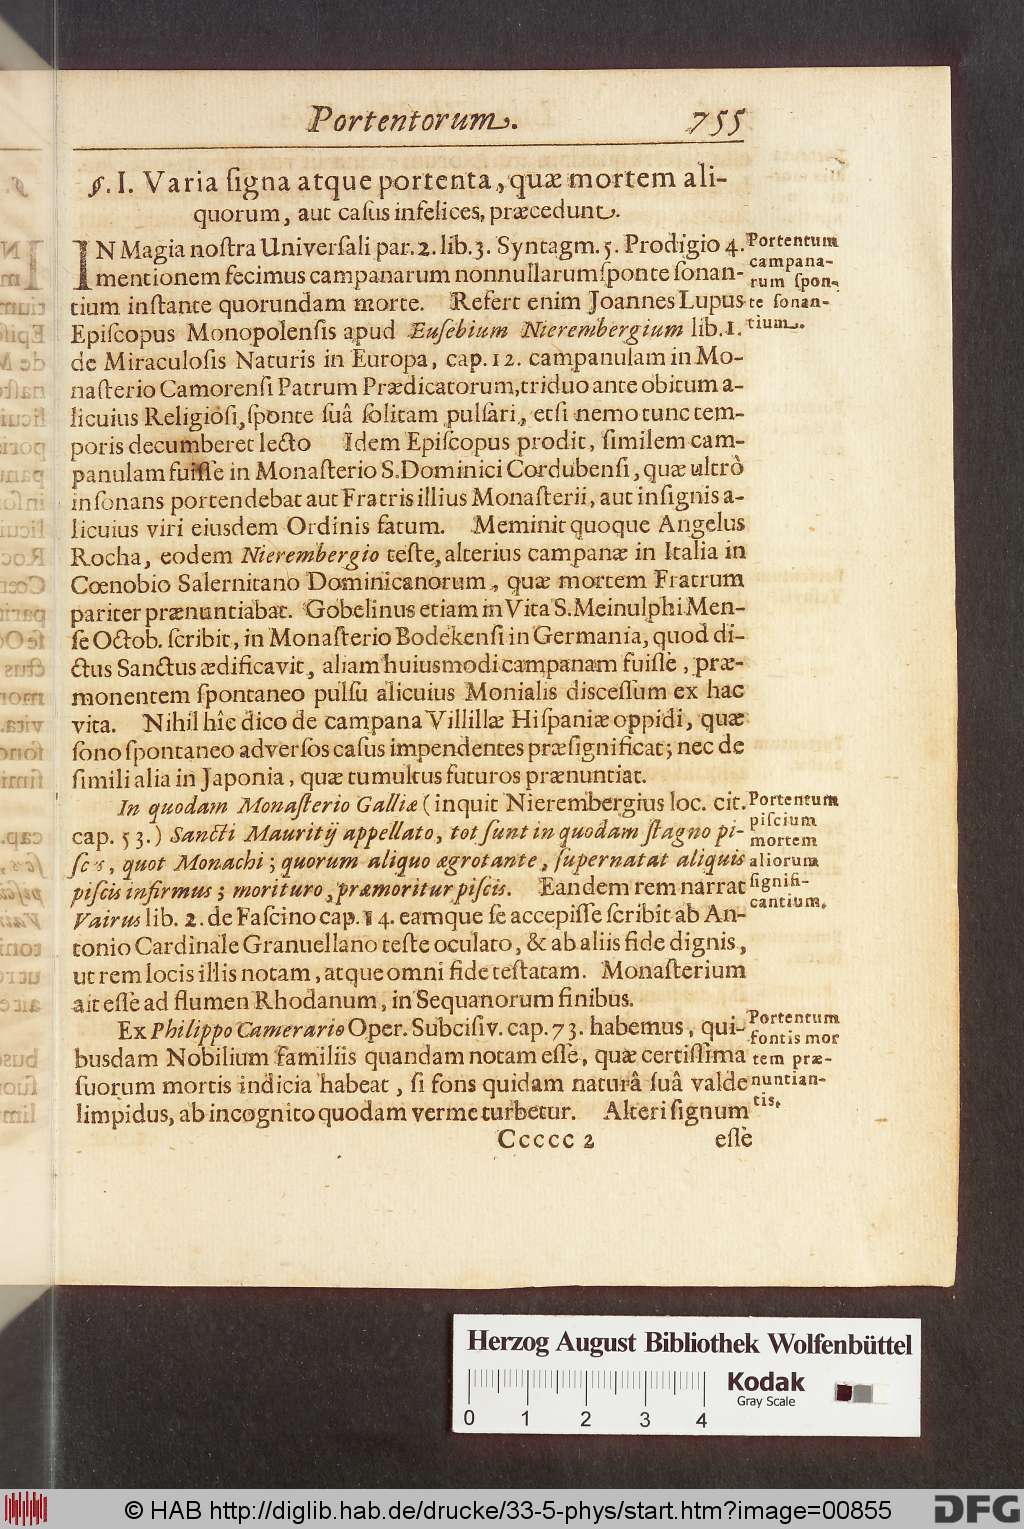 Portentorum. 755
§. I. Varia ſigna atque portenta, quæ mortem ali-
quorum, aut caſus infelices, præcedunt.
IN Magia noſtra Univerſali par. 2. lib. 3. Syntagm. 5. Prodigio 4.
mentionem fecimus campanarum nonnullarum ſponte ſonan-
tium inſtante quorundam morte. Refert enim Joannes Lupus
Epiſcopus Monopolenſis apud Euſebium Nierembergium lib. 1.
de Miraculoſis Naturis in Europa, cap. 12. campanulam in Mo-
naſterio Camorenſi Patrum Prædicatorum, triduo ante obitum a-
licuius Religioſi, ſponte ſuâ ſolitam pulſari, etſi nemo tunc tem-
poris decumberet lecto Idem Epiſcopus prodit, ſimilem cam-
panulam fuiſſe in Monaſterio S. Dominici Cordubenſi, quæ ultrò
inſonans portendebat aut Fratris illius Monaſterii, aut inſignis a-
licuius viri eiusdem Ordinis fatum. Meminit quoque Angelus
Rocha, eodem Nierembergio teſte, alterius campanæ in Italia in
Cœnobio Salernitano Dominicanorum, quæ mortem Fratrum
pariter prænuntiabat. Gobelinus etiam in Vita S. Meinulphi Men-
ſe Octob. ſcribit, in Monaſterio Bodekenſi in Germania, quod di-
ctus Sanctus ædificavit, aliam huiusmodi campanam fuiſſe, præ-
monentem ſpontaneo pulſu alicuius Monialis diſceſſum ex hac
vita. Nihil hîc dico de campana Villillæ Hiſpaniæ oppidi, quæ
ſono ſpontaneo adverſos caſus impendentes præſignificat; nec de
ſimili alia in Japonia, quæ tumultus futuros prænuntiat.
In quodam Monaſterio Galliæ (inquit Nierembergius loc. cit.
cap. 53.) Sancti Mauritij appellato, tot ſunt in quodam ſtagno pi-
ſces, quot Monachi; quorum aliquo ægrotante, ſupernatat aliquis
piſcis infirmus; morituro, præmoritur piſcis. Eandem rem narrat
Vairus lib. 2. de Faſcino cap. 14. eamque ſe accepiſſe ſcribit ab An-
tonio Cardinale Granuellano teſte oculato, & ab aliis fide dignis,
ut rem locis illis notam, atque omni fide teſtatam. Monaſterium
ait eſſe ad flumen Rhodanum, in Sequanorum finibus.
Ex Philippo Camerario Oper. Subciſiv. cap. 73. habemus, qui-
busdam Nobilium familiis quandam notam eſſe, quæ certiſſima
ſuorum mortis indicia habeat, ſi fons quidam naturâ ſuâ valde
limpidus, ab incognito quodam verme turbetur. Alteri ſignum
Ccccc 2 eſſe
Portentum
campana-
rum ſpon-
te ſonan-
tium.
Portentum
piſcium
mortem
aliorum
ſignifi-
cantium.
Portentum
fontis mor
tem præ-
nuntian-
tis.
Herzog August Bibliothek Wolfenbüttel
Kodak
Gray Scale
0 1 2 3 4
© HAB http://diglib.hab.de/drucke/33-5-phys/start.htm?image=00855
DFG